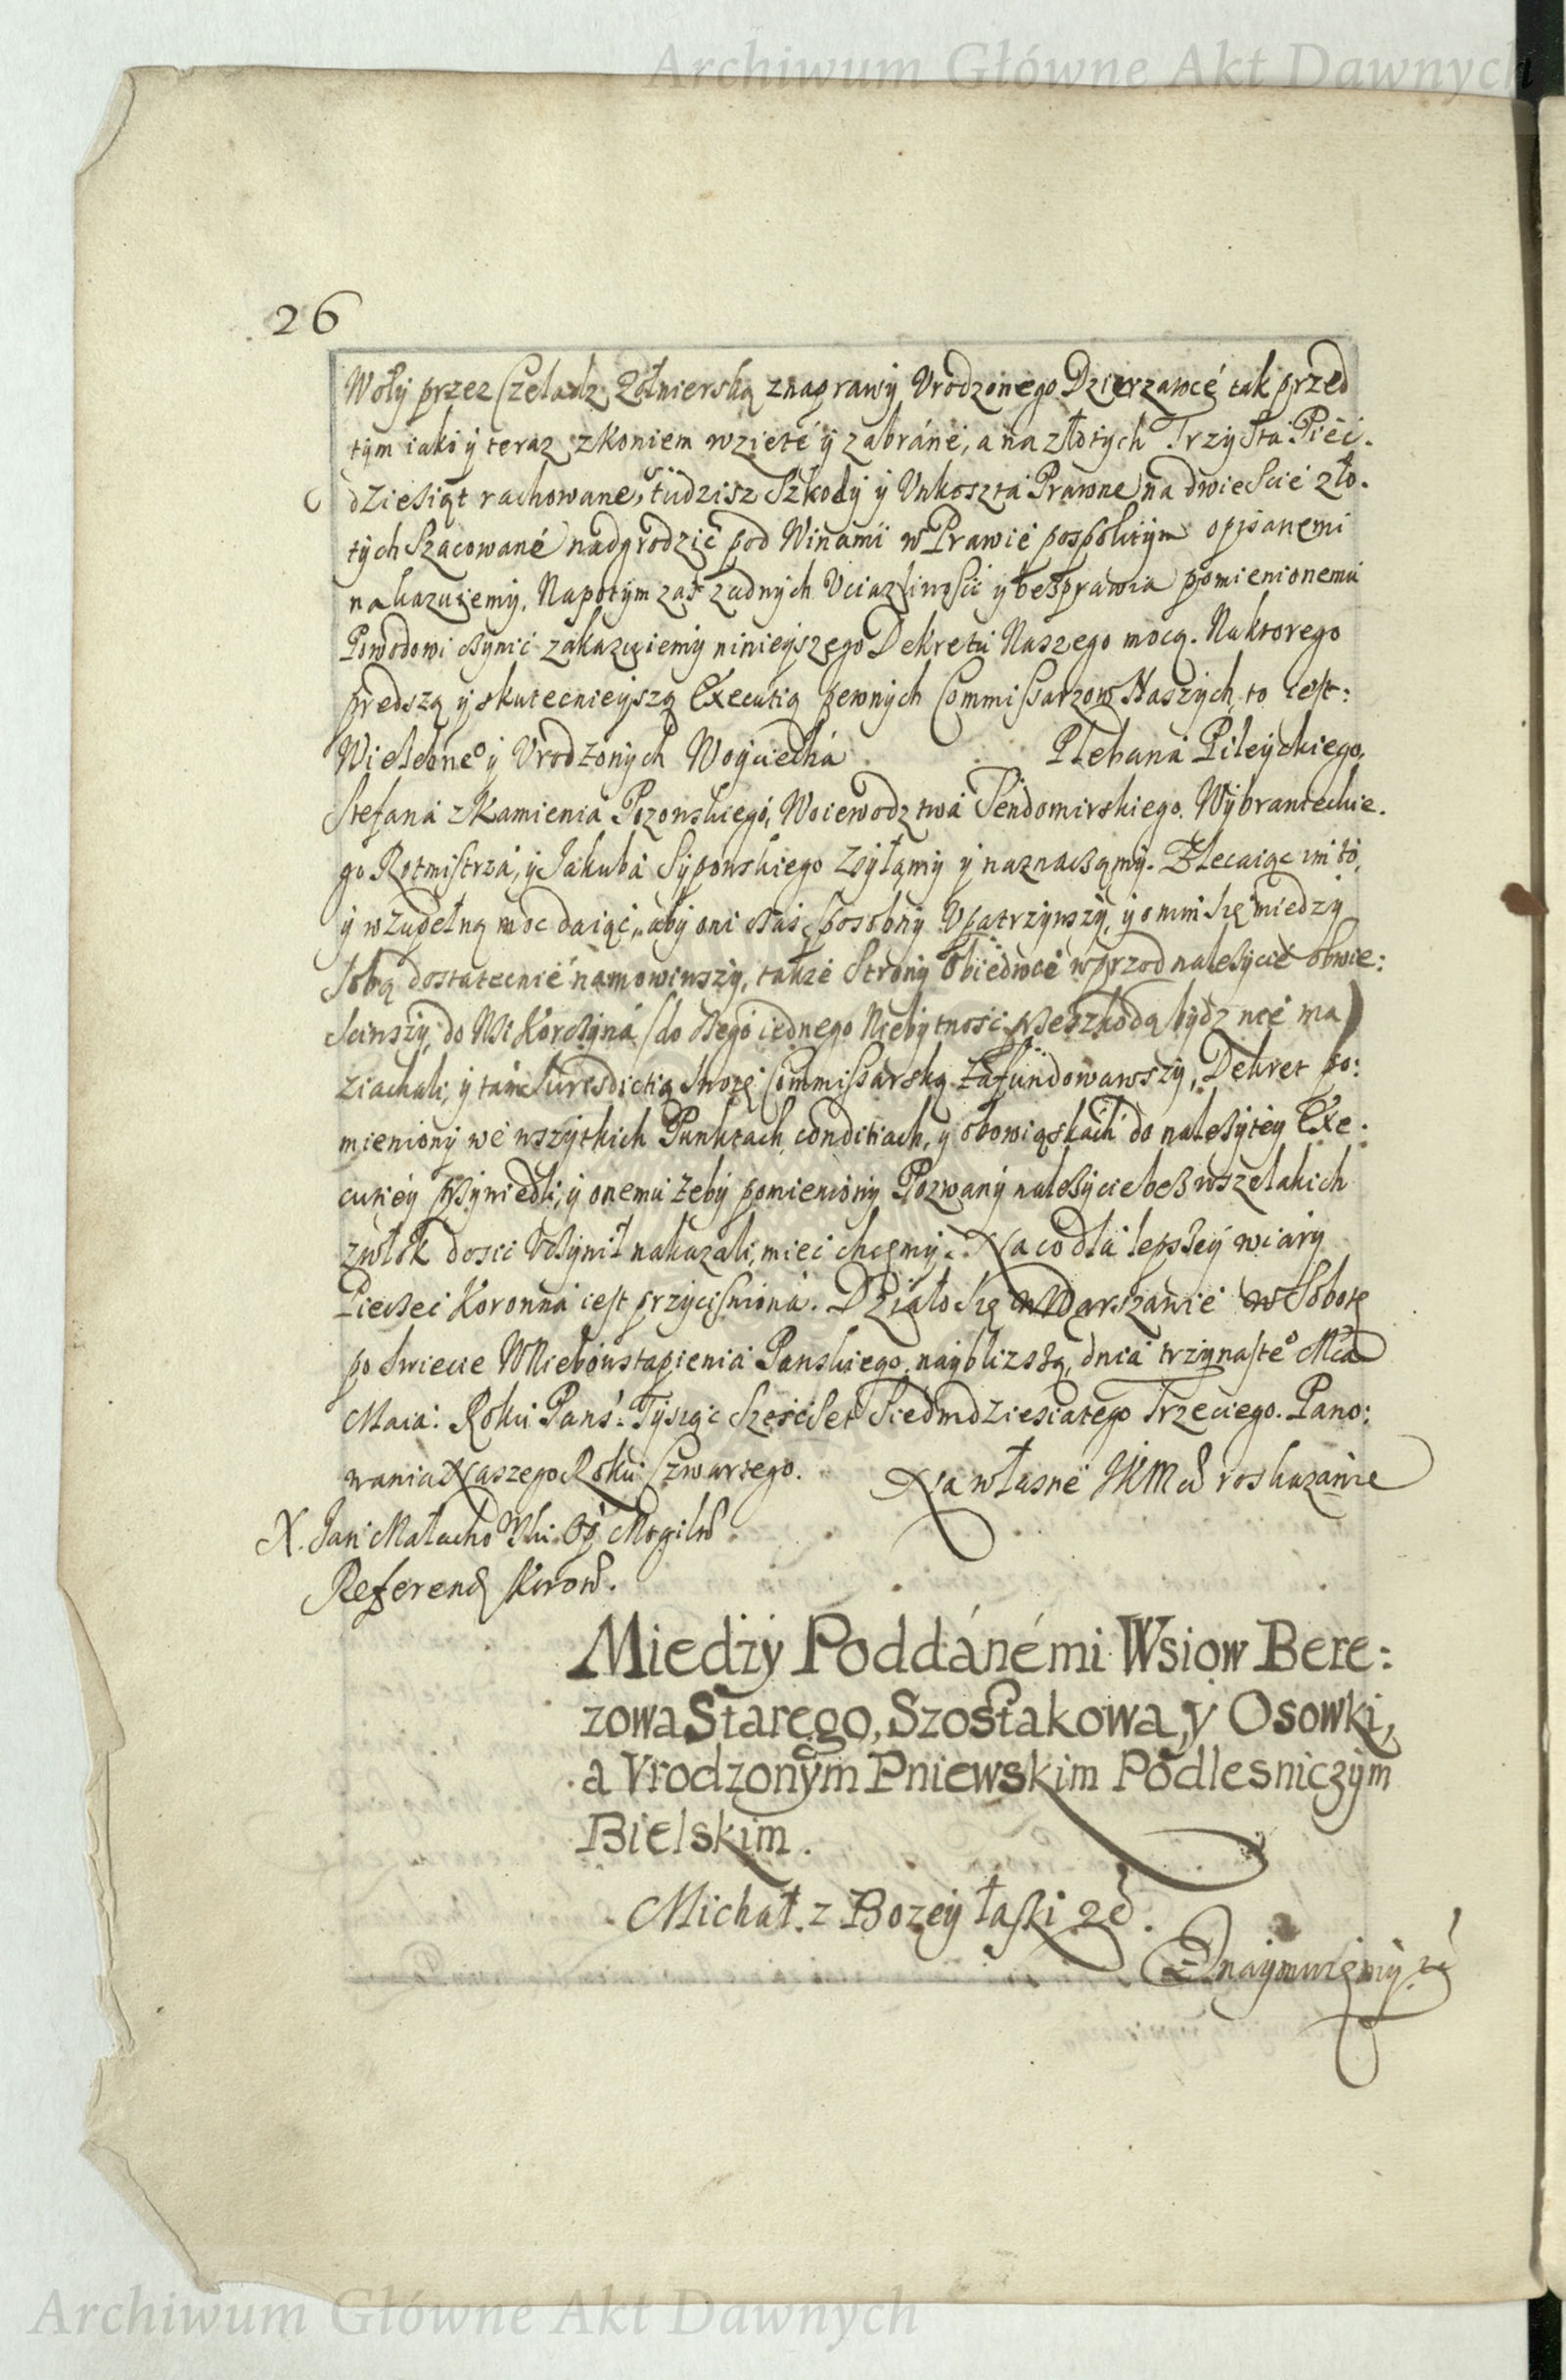 Archiwum Główne Akt Dawnych
26
Woły przez Czeladz Zołnierską znaprawy Vrodzonego Dzierzawcé tak przed
tym iako y teraz zkoniem wzięté y zabráné, a na złotych Trzy Sta Pięć.
dziesiąt rachowane, tudzisz Szkody y Vnkoszta Prawne na dwieście zło.
tych Szacowané nadgrodzić pod Winami w Prawie pospolitym opisanemi
nakazuiemy. Napotym zaś żadnych Vciązliwości y besprawia pomienionemu
Powodowi czynić zakazuiemy ninieyszego Dekretu Naszego mocą. Naktorego
prędszą y skutecnieyszą Executią pewnych Commissarzow Naszych to iest:
Wielebneo y Vrodzonych Woyciecha Plebana Pileyckiego,
Stefana z Kamienia Pozowskiego, Woiewodztwa Sendomirskiego. Wybranieckie.
go Rotmistrza, y Iakuba Syponskiego Zsyłamy y naznaczamy. Zlecaiąc im to,
y wzupełną moc daiąc, aby oni czas sposobny Vpatrzywszy, y omni się miedzy
sobą dostatecnie namowiwszy, takze Strony Obiedwie wprzod należycie obwie:
sciwszy, do Wsi Korczyna (do czego iednego Niebytność przeszkodą bydz nie ma)
ziachali, y tam Iurisdictią Swoię Commissarską zafundowawszy, Dekret po:
mieniony we wszytkich Punktach, conditiach, y obowiąskach do nalezytey Exe:
cutiey przywiedli, y onemu żeby pomieniony Pozwany należycie bes wszelakich
zwłok dosci Vczynił nakazali, mieć chcemy. Na co dla lepszey wiary
Pieczęć Koronna iest przyciśniona. Działo się w Warszawie w Sobotę
po Swięcie W Niebowstąpienia Panskiego nayblizszą, dnia trzynasteo Mca
Maia: Roku Pańs: Tysiąc Sześćset Siedmdziesiątego Trzeciego. Pano:
wania Naszego Roku Czwartego. Na własné IKMci roskazanie
X. Jan Małachowski Op. Mogils
Referend Koron.
Miedzy Poddánémi Wsiow Bere:
zowa Starego, Szostakowa, y Osowki,
a Vrodzonym Pniewskim Podlesniczym
Bielskim.
Michał z Bozey łaski &c.
Oznaymuiemy &c
Archiwum Główne Akt Dawnych